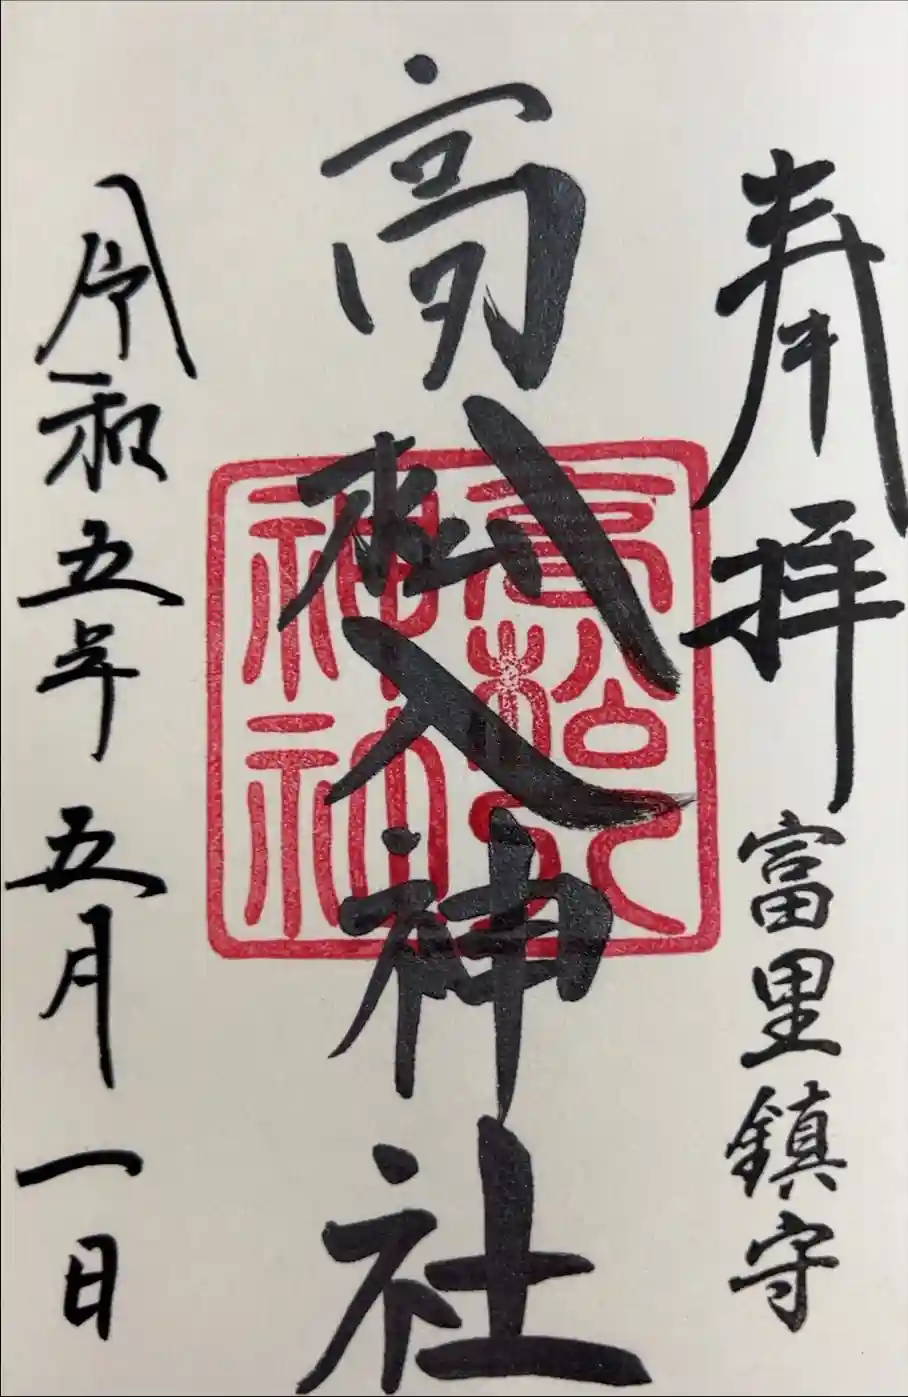 奉拝
富里鎮守
高松入神社
高松入
神社
令和五年五月一日